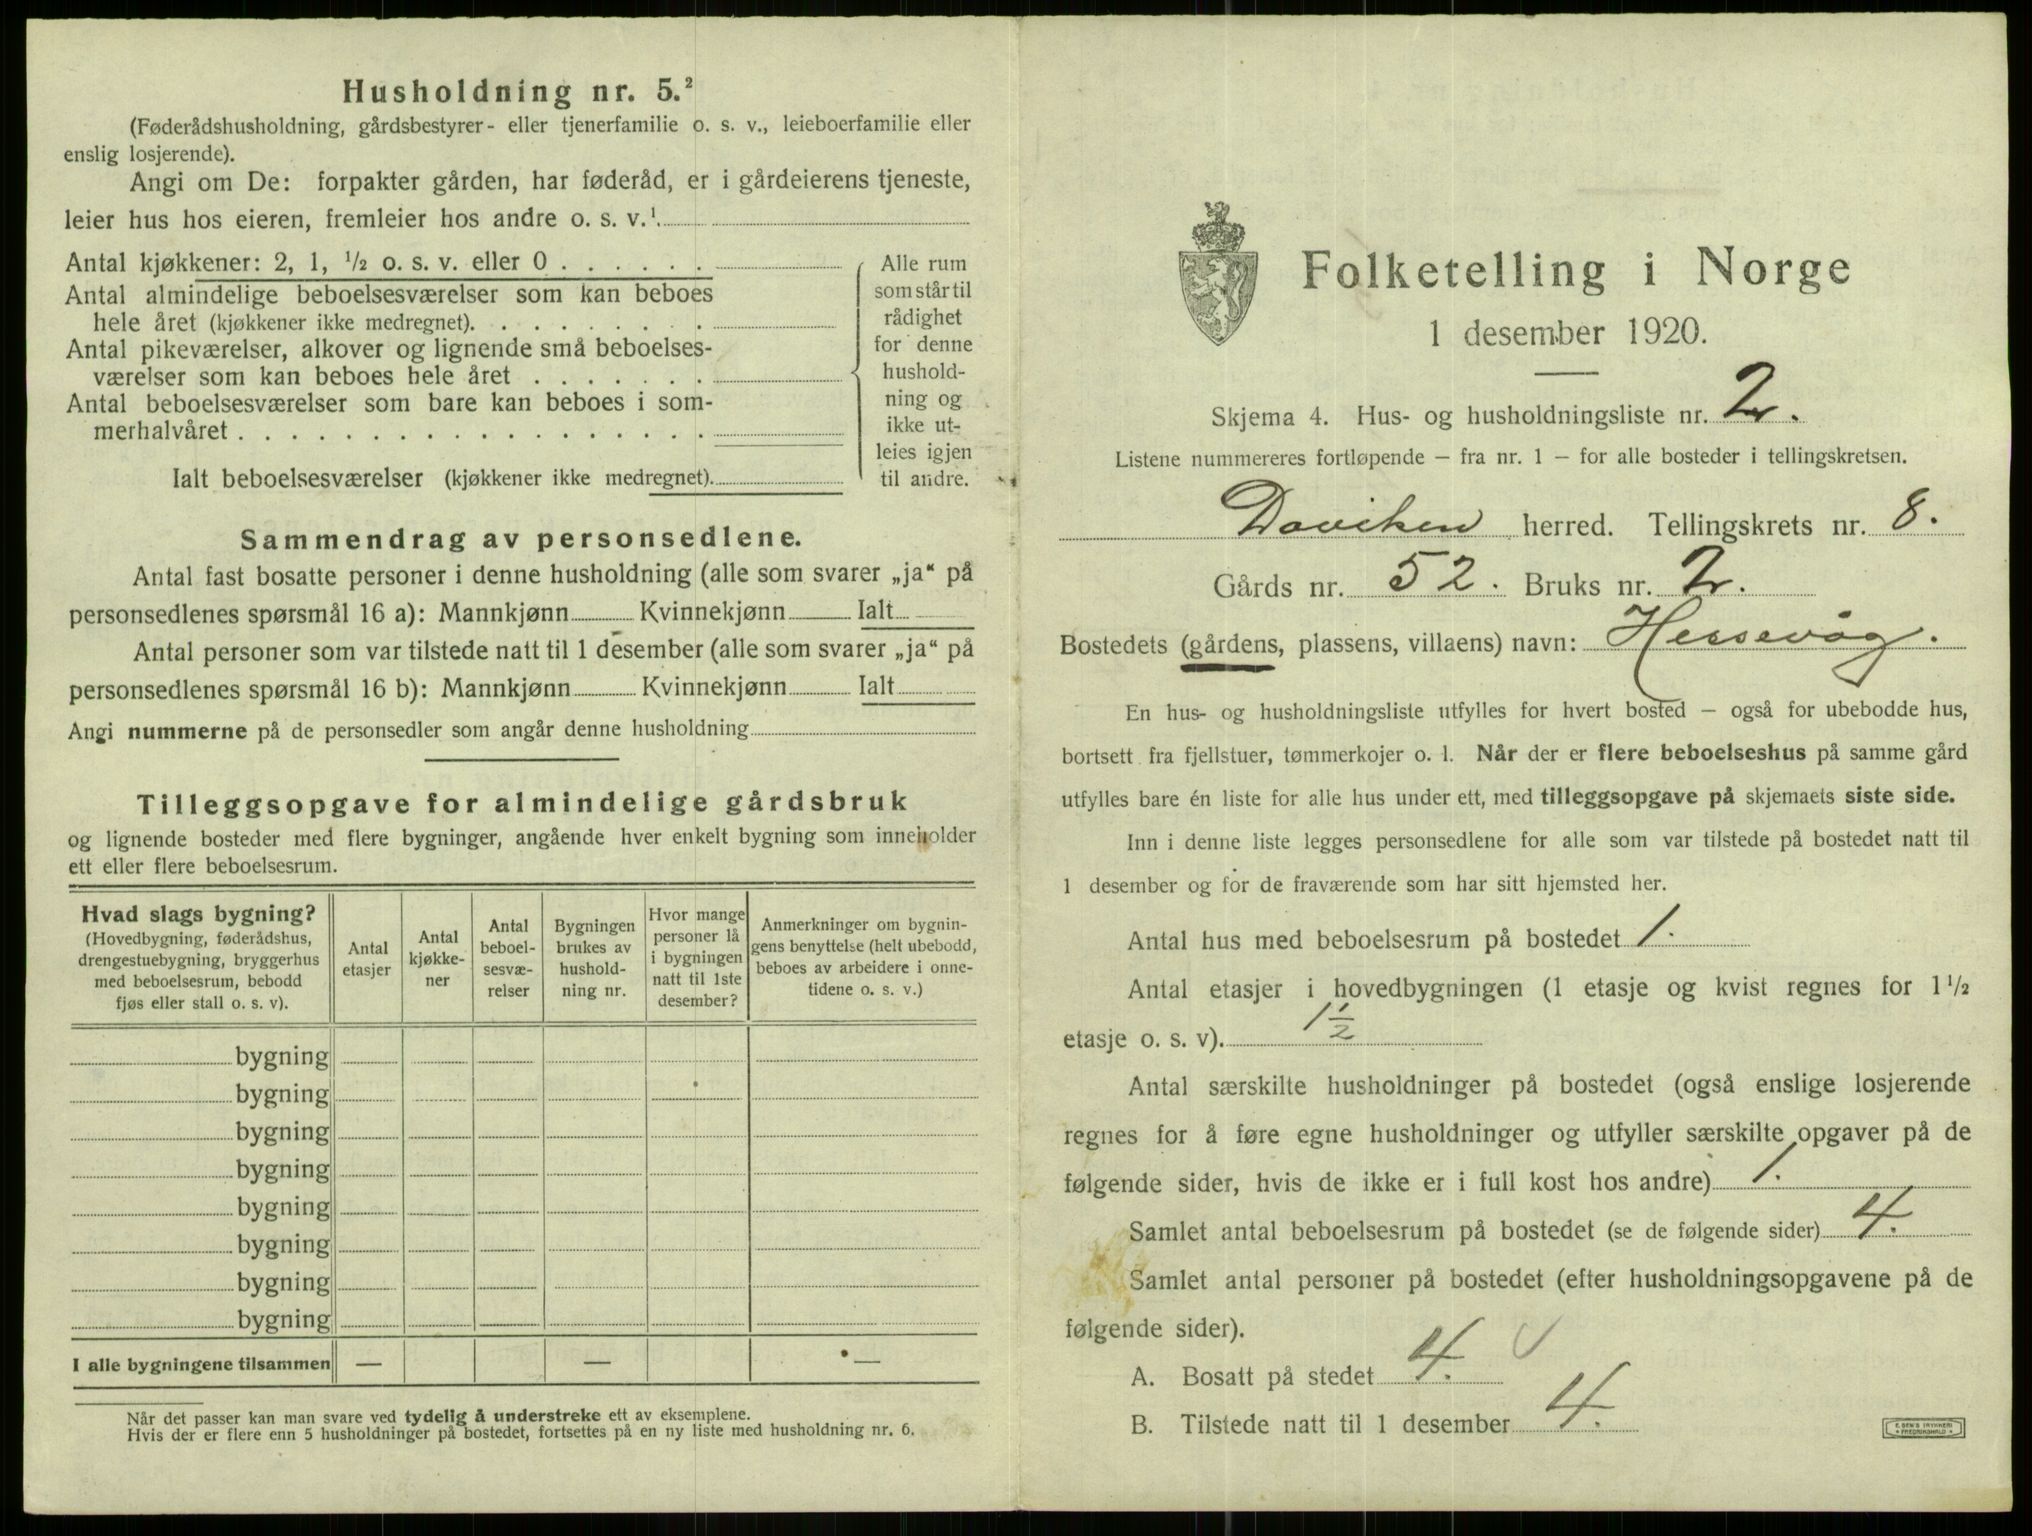 Husholdning nr. 5.²
(Føderådshusholdning, gårdsbestyrer- eller tjenerfamilie o. s. v., leieboerfamilie eller
enslig losjerende).
Angi om De: forpakter gården, har føderåd, er i gårdeierens tjeneste,
leier hus hos eieren, fremleier hos andre o. s. v.¹
Antal kjøkkener: 2, 1, ½ o. s. v. eller 0 . . . . . .
Antal almindelige beboelsesværelser som kan beboes
hele året (kjøkkener ikke medregnet). . . . . . . .
Antal pikeværelser, alkover og lignende små beboelses-
værelser som kan beboes hele året . . . . . . .
Antal beboelsesværelser som bare kan beboes i som-
merhalvåret . . . . . . . . . . . . . . . . . .
Ialt beboelsesværelser (kjøkkener ikke medregnet).
Alle rum
som står til
rådighet
for denne
hushold-
ning og
ikke ut-
leies igjen
til andre.
Sammendrag av personsedlene.
Antal fast bosatte personer i denne husholdning (alle som svarer „ja“ på
personsedlenes spørsmål 16 a): Mannkjønn Kvinnekjønn Ialt
Antal personer som var tilstede natt til 1 desember (alle som svarer „ja“ på
personsedlenes spørsmål 16 b): Mannkjønn Kvinnekjønn Ialt
Angi nummerne på de personsedler som angår denne husholdning
Tilleggsopgave for almindelige gårdsbruk
og lignende bosteder med flere bygninger, angående hver enkelt bygning som inneholder
ett eller flere beboelsesrum.
Hvad slags bygning?
(Hovedbygning, føderådshus,
drengestuebygning, bryggerhus
med beboelsesrum, bebodd
fjøs eller stall o. s. v).
Antal
etasjer
Antal
kjøkke-
ner
Antal
beboel-
sesvæ-
relser
Bygningen
brukes av
hushold-
ning nr.
Hvor mange
personer lå
i bygningen
natt til 1ste
desember?
Anmerkninger om bygnin-
gens benyttelse (helt ubebodd,
beboes av arbeidere i onne-
tidene o. s. v.)
bygning
bygning
bygning
bygning
bygning
bygning
bygning
bygning
I alle bygningene tilsammen — — —
Når det passer kan man svare ved tydelig å understreke ett av eksemplene.
Hvis der er flere enn 5 husholdninger på bostedet, fortsettes på en ny liste med husholdning nr. 6.
Folketelling i Norge
1 desember 1920.
Skjema 4. Hus- og husholdningsliste nr. 2.
Listene nummereres fortløpende – fra nr. 1 – for alle bosteder i tellingskretsen.
Daviken herred. Tellingskrets nr. 8.
Gårds nr. 52. Bruks nr. 2.
Bostedets (gårdens, plassens, villaens) navn: Hessevåg.
En hus- og husholdningsliste utfylles for hvert bosted – også for ubebodde hus,
bortsett fra fjellstuer, tømmerkojer o. l. Når der er flere beboelseshus på samme gård
utfylles bare én liste for alle hus under ett, med tilleggsopgave på skjemaets siste side.
Inn i denne liste legges personsedlene for alle som var tilstede på bostedet natt til
1 desember og for de fraværende som har sitt hjemsted her.
Antal hus med beboelsesrum på bostedet 1.
Antal etasjer i hovedbygningen (1 etasje og kvist regnes for 1½
etasje o. s. v). 1½
Antal særskilte husholdninger på bostedet (også enslige losjerende
regnes for å føre egne husholdninger og utfyller særskilte opgaver på de
følgende sider, hvis de ikke er i full kost hos andre) 1.
Samlet antal beboelsesrum på bostedet (se de følgende sider) 4.
Samlet antal personer på bostedet (efter husholdningsopgavene på de
følgende sider).
A. Bosatt på stedet 4.
B. Tilstede natt til 1 desember 4.